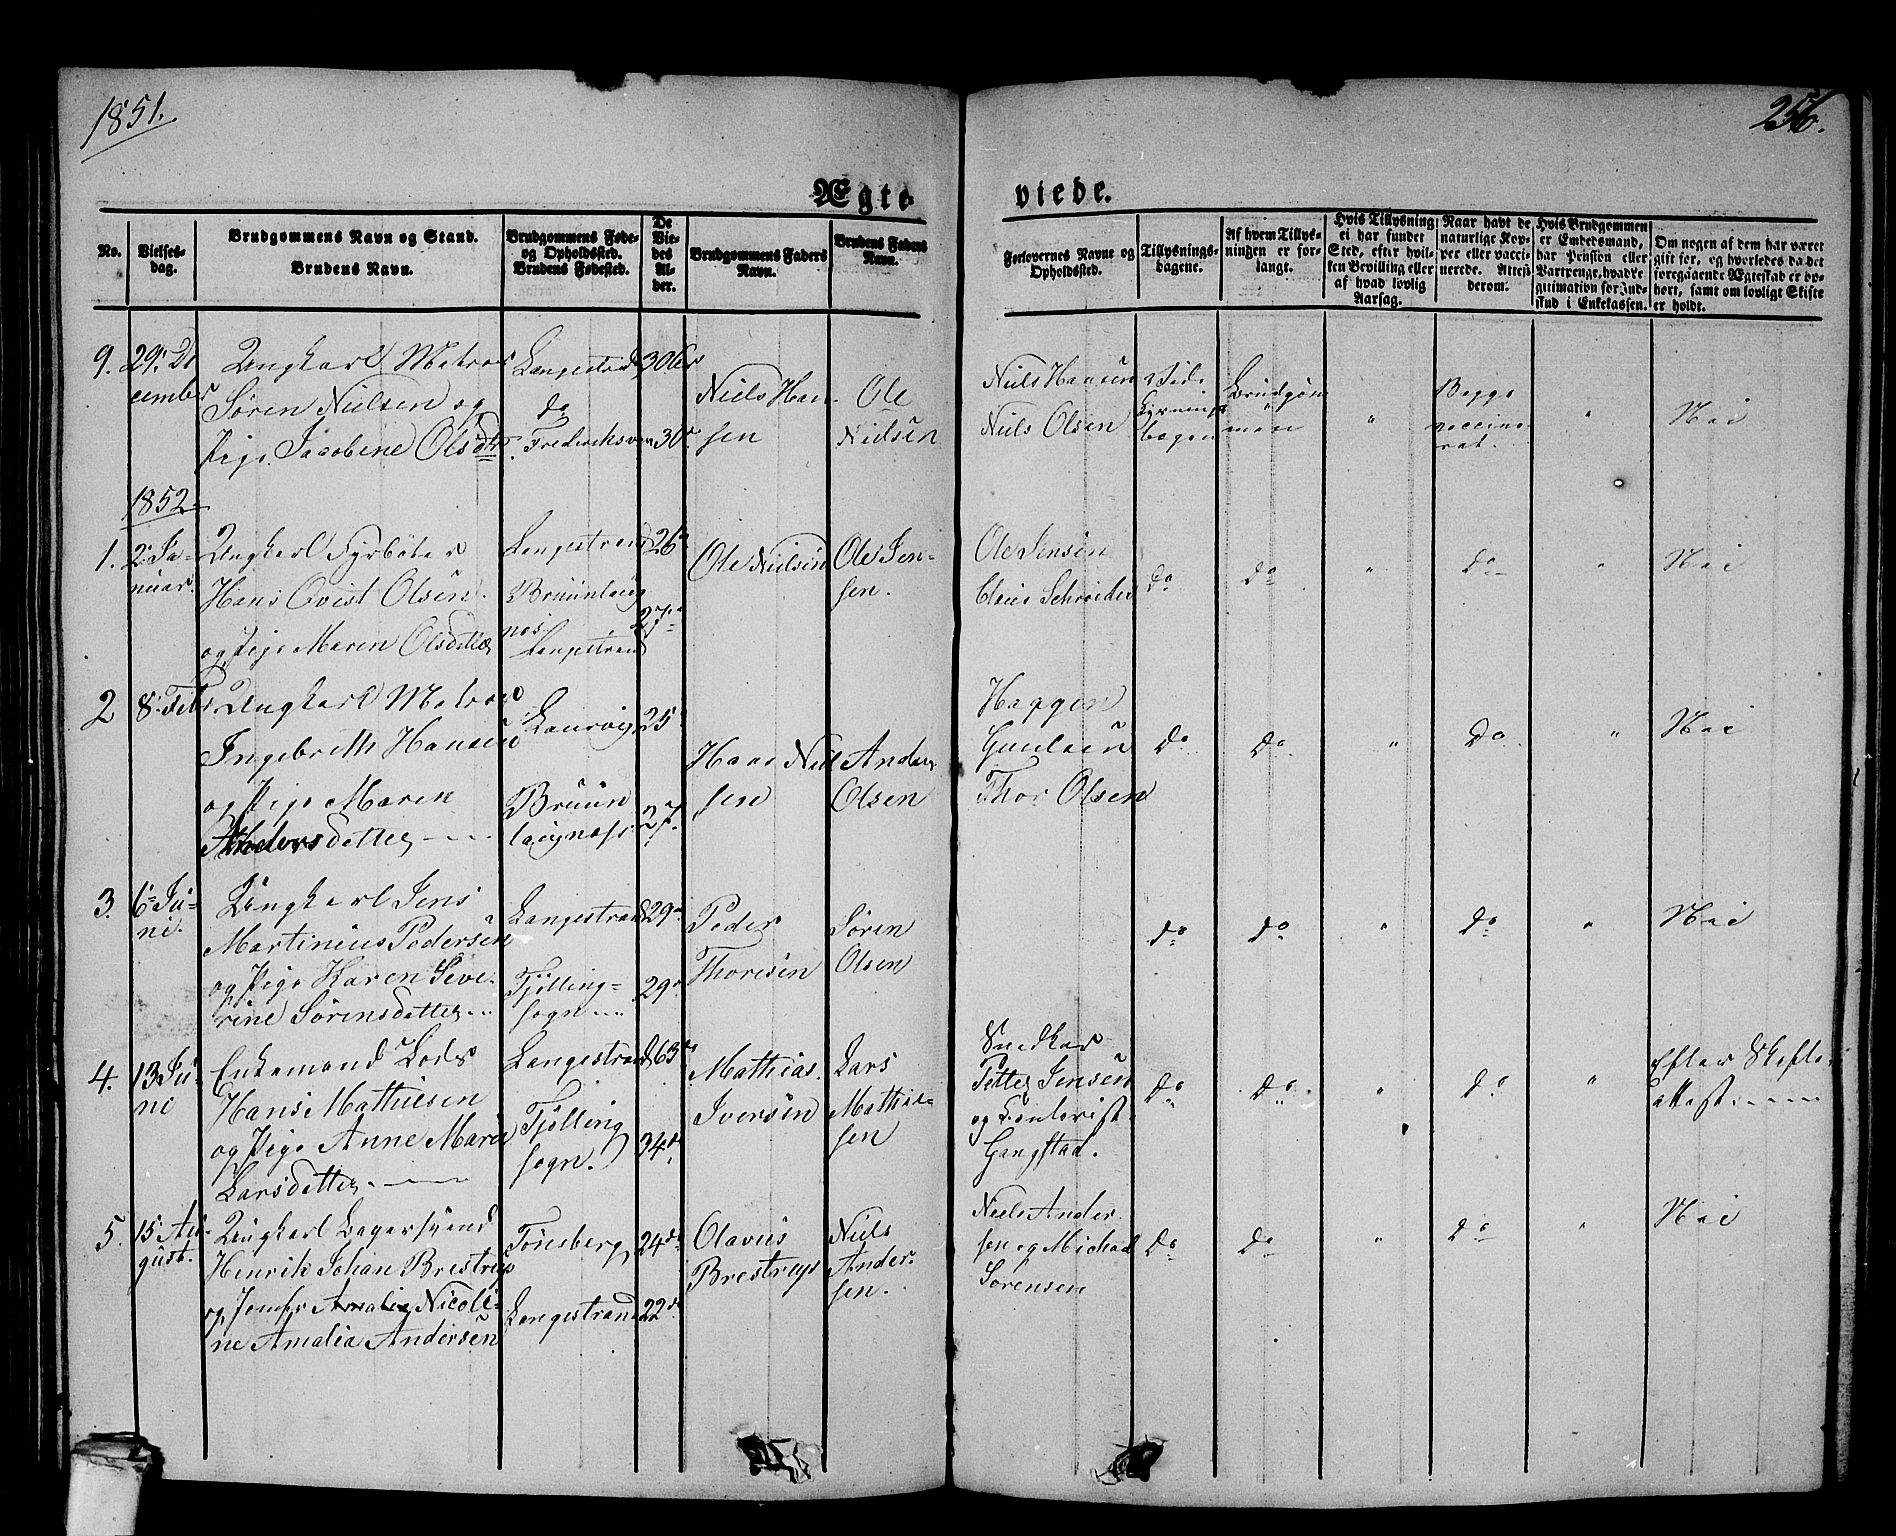 1851.
256.
Ægte
viede.
No.
Vielses-
dag.
Brudgommens Navn og Stand.
Brudens Navn.
Brudgommens Føde-
og Opholdssted.
Brudens Fødested.
De
Vie-
des
Al-
der.
Brudgommens Faders
Navn.
Brudens Faders
Navn.
Forlovernes Navne og
Opholdssted.
Tillysnings-
dagene.
Af hvem Tillys-
ningen er for-
langt.
Hvis Tillysning
ei har fundet
Sted, efter hvil-
ken Bevilling eller
af hvad lovlig
Aarsag.
Naar havt de
naturlige Kop-
per eller vacci-
nerede. Attesi
derom.
Hvis Brudgommen
er Embedsmand,
har Pension eller
Vartpenge, hvad Le-
gitimation for Ind-
skud i Enkekassen.
Om nogen af dem har været
gift før, og hvorledes da det
foregaaende Ægteskab er op-
hørt, samt om lovligt Skifte
er holdt.
9. 29. De
cember
Ungkarl Matros
Søren Nielsen og
Pige Jacobine Olsdtr.
Langestrand
do
Frederiksværn
30
30
Niels Han-
sen
Ole
Nielsen
Niels Hansen
Niels Olsen
Vide
Lysnings
bogen
Brudgom
men
"
Begge
vaccine
rat.
"
Nei
1852
1. 2 Ja-
nuar.
Ungkarl Fyrbøter
Hans Qvist Olsen
og Pige Maren Olsdatter
Langestrand
Bruunlaug
næs
Langestrand
26
27
Ole Nielsen
Ole Jen-
sen.
Ole Jensen
Claus Schrøder
do
do
"
do
"
Nei
2 8. Febr
Ungkarl Matros
Ingebrith Hansen
og Pige Maren
Andersdatter
Laurvig
Bruun
laugnæss
25
27.
Hans Niel
sen
Anders
Olsen
Haagen
Gunlsen
Thor Olsen
do
do
"
do
"
Nei
3. 6 Ju-
ni.
Ungkarl Jens
Martinius Pedersen
og Pige Karen Seve-
rine Sørensdatter
Langestrand
Tjølling-
sogn
29
29
Peder
Thoresen
Søren
Olsen
do
do
"
do
"
Nei
4. 13 Ju-
ni
Enkemand Lods
Hans Mathiesen
og Pige Anne Marie
Larsdatter
Langestrand
Tjølling
sogn.
63
34
Mathias
Iversen
Lars
Mathie-
sen
Snedker
Petter Jensen
og
Gangstad.
do
do
"
do
"
Efter Skifte
attest
5. 15 Au-
gust.
Ungkarl Bagersvend
Henrik Johan Brestrup
og Jomfr Amalia Nicoli-
ne Amalia Andersen
Tønsberg
Langestrand
24
22
Olavus
Brestrup
Niels
Ander-
sen.
Niels Ander
sen og Michael
Sørensen
do
do
"
do
"
Nei